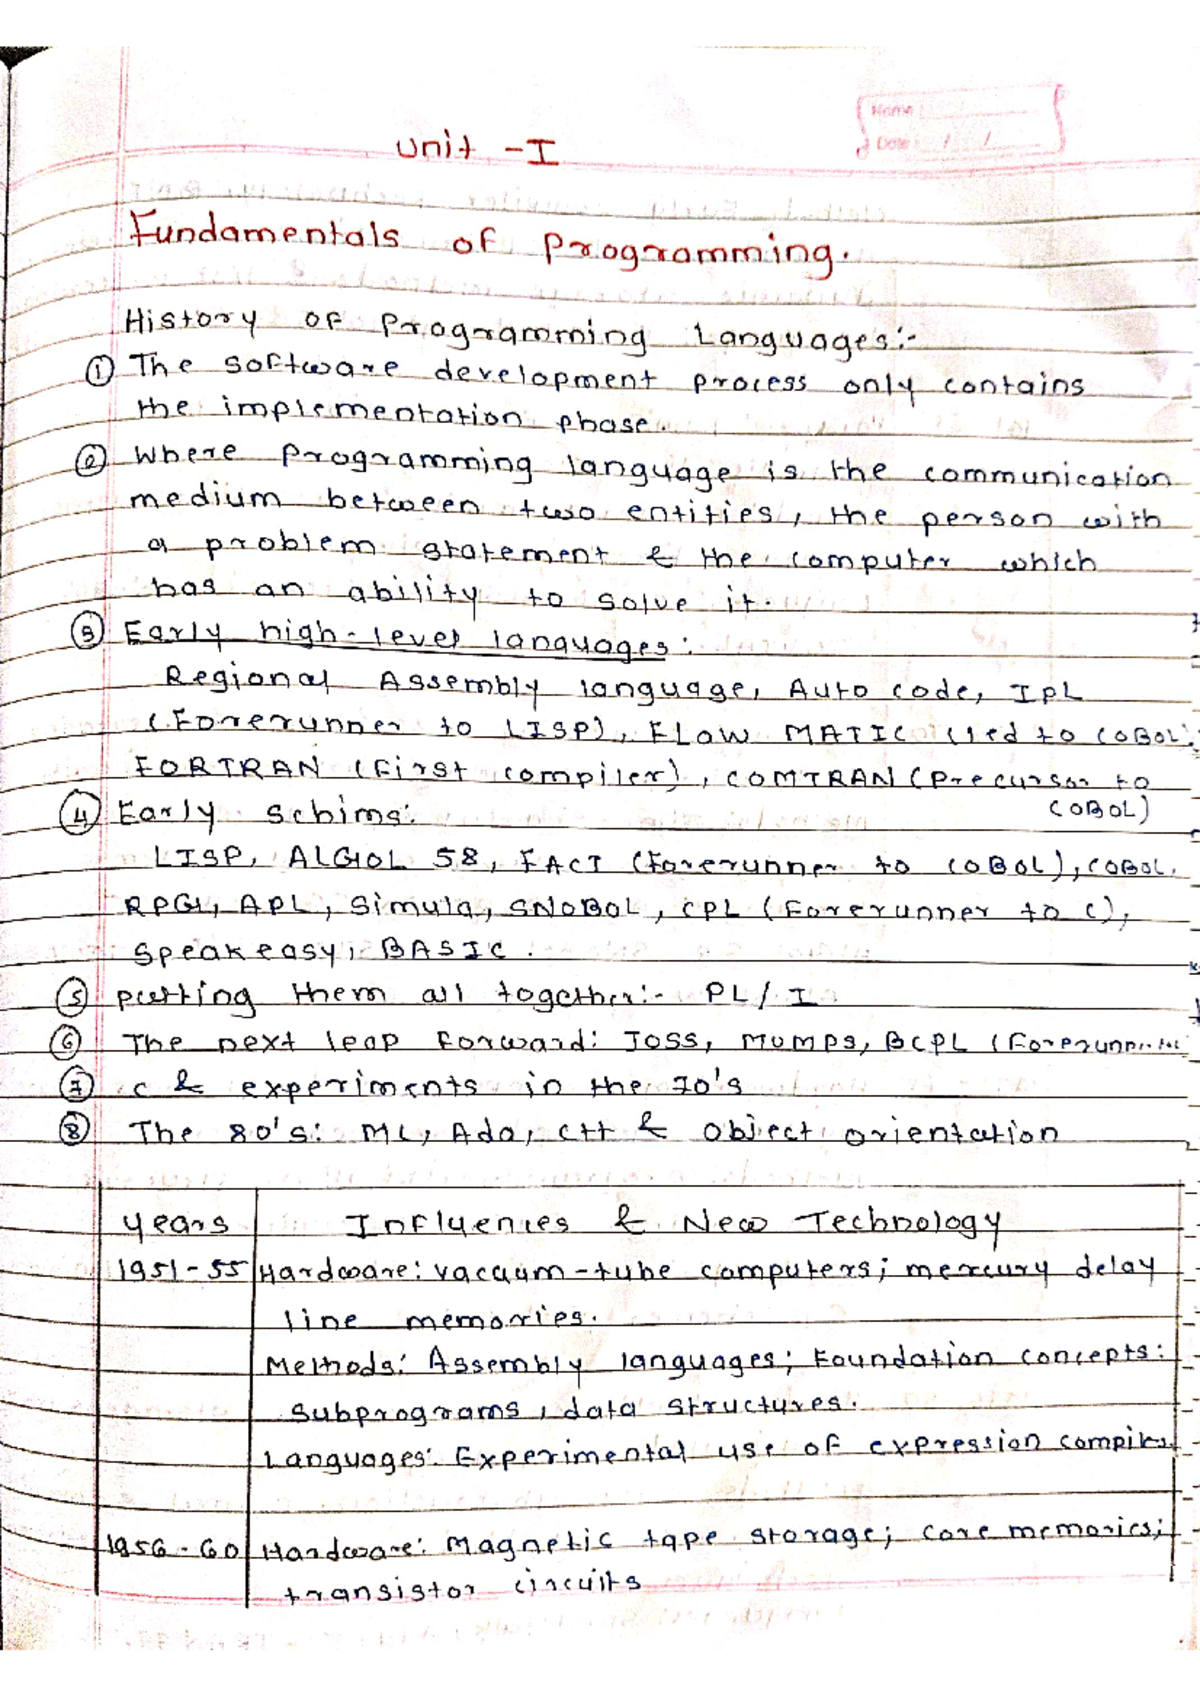 Name
Date / /
Unit - I
Fundamentals of Programming.
History of Programming Languages:-
① The software development process only contains
the implementation phase.
② Where Programming language is the communication
medium between two entities, the person with
a problem statement & the computer which
has an ability to solve it.
③ Early high-level languages:
Regional Assembly language, Auto code, IPL
(Forerunner to LISP), FLOW MATIC (led to COBOL),
FORTRAN (First compiler), COMTRAN (Precursor to
COBOL)
④ Early schims:
LISP, ALGOL 58, FACT (Forerunner to COBOL), COBOL,
RPG, APL, Simula, SNOBOL, CPL (Forerunner to C),
Speakeasy, BASIC.
⑤ putting them all together:- PL/I
⑥ The next leap forward: JOSS, MUMPS, BCPL (Forerunner to
⑦ C & experiments in the 70's
⑧ The 80's: ML, Ada, C++ & object orientation
Years Influences & New Technology
1951-55 Hardware: vacuum-tube computers; mercury delay
line memories.
Methods: Assembly languages; Foundation concepts:
subprograms, data structures.
Languages: Experimental use of expression
1956-60 Hardware: Magnetic tape storage; core memories;
transistor circuits